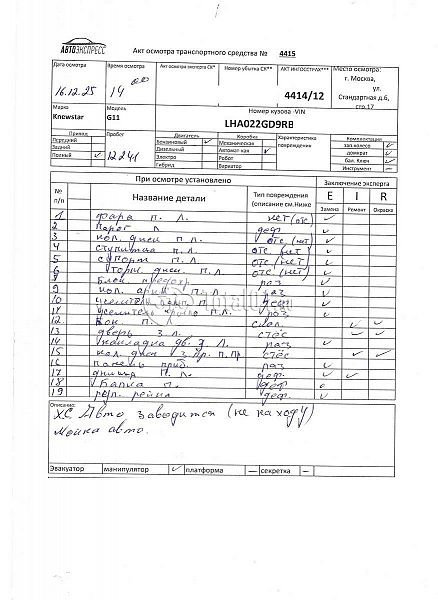 АВТОЭКСПРЕСС
Акт осмотра транспортного средства № 4415
Дата осмотра
Время осмотра
Акт осмотра эксперта СК*
Номер убытка СК**
АКТ ИНГОССТРАХ***
Место осмотра:
г. Москва,
ул.
Стандартная д.6,
стр.17
16.12.25
14 00
4414/12
Марка
Модель
Номер кузова -VIN
Knewstar
G11
LHA022GD9RB
Привод
Пробег
Двигатель
Коробка
Характеристика повреждения
Комплектация
Передний
Бензиновый ✓
Механическая
зап.колесо ✓
Задний
Дизельный
Автомат-кая ✓
домкрат ✓
Полный ✓
12241
Электро
Робот
бал. Ключ ✓
Гибрид
Вариатор
Инструмент –
При осмотре установлено
Заключение эксперта
№ п/п
Название детали
Тип повреждения (описание см.Ниже
E I R
Замена Ремонт Окраска
1 фара п. л. нет (отс) ✓
2 деф ✓
3 кол. диск п. л. отс (нет) ✓
4 ступица п. л. отс (нет) ✓
5 суппорт п. л. отс (нет) ✓
6 торм. диск. п. л отс (нет) ✓
8 Блок раз ✓
9 кол. арки п. л раз ✓
10 усилитель деф ✓
11 усилитель раз ✓
12. п. л. ✓ ✓
13 дверь з. л. ✓ ✓
14 накладка дв. л. раз ✓
15 кол. диск п. пр ✓ ✓
16 панель приб. раз ✓
17 днище п. л. деф. ✓ ✓
18 Балка п. деф ✓
19 рул. рейка деф. ✓
Описание:
ХС Авто заводится (не на ходу)
Мойка авто.
Эвакуатор манипулятор ✓ платформа — секретка —